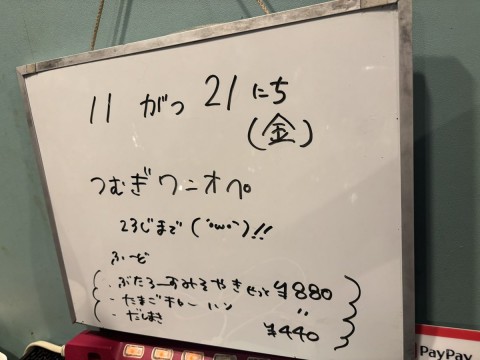 11 がつ 21 にち
(金)
つむぎワンオペ
23じまで (´•ω•`)!!
ふーど
・ぶたろーすみそやきせっと ¥880
・たまごチャーハン 〃
・だしまき ¥440
PayPay